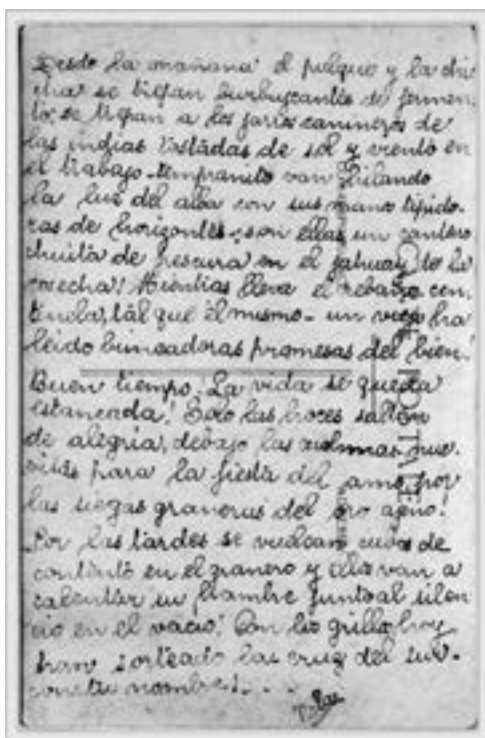 Desde la mañana el pulque y la chi
cha se trepan burbujeantes de fermen
to, se trepan a los
las indias tostadas de sol y viento en
el trabajo - tempranito van hilando
la luz del alba con sus manos tejedo-
ras de horizontes; son ellas un
de frescura en el de la
cosecha! Mientras lleva el rebaño
tal que él mismo - un
leido promesas del bien!
Buen tiempo! La vida se queda
estancada! Solo las hoces saltan
de alegria, debajo las
para la fiesta del amo por
las siegas graneras del oro ageno!
Por las tardes se vuelcan de
contento en el granero y ellas van a
calentar su hambre junto al silen
cio en el vacio! Con los grillos hoy
han sorteado las cruz del sur.
con tu nombre! . . .
CARTE POSTALE